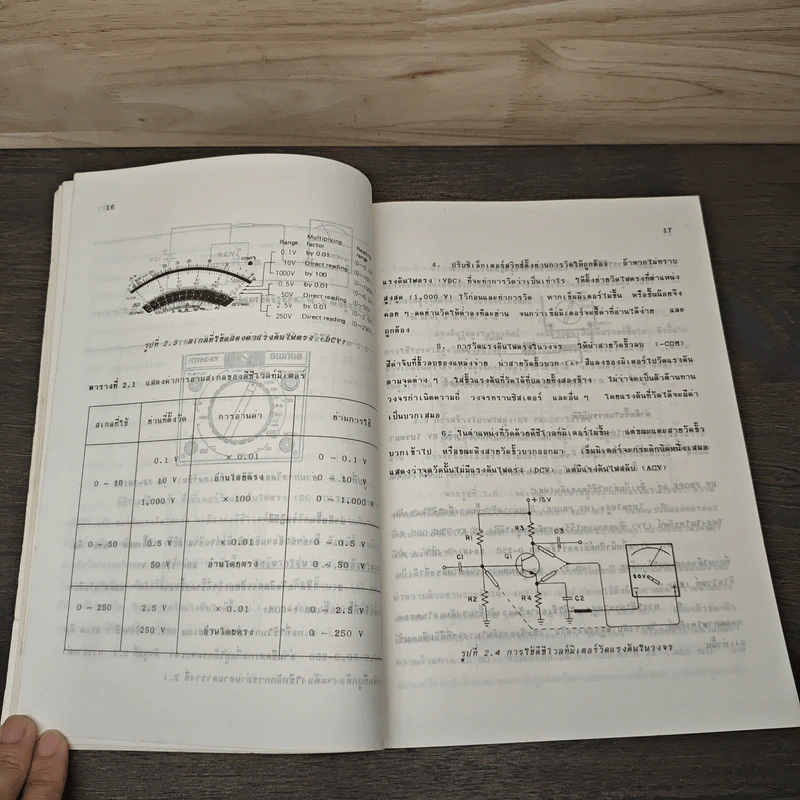 16
Range Multiplying factor
0.1V by 0.01
10V Direct reading
1000V by 100
0.5V by 0.01
50V Direct reading
2.5V by 0.01
250V Direct reading
รูปที่ 2.3 สเกลที่ใช้แสดงค่าแรงดันไฟตรง (DCV)
ตารางที่ 2.1 แสดงค่าการอ่านสเกลของดีซีโวลท์มิเตอร์
สเกลที่ใช้ ย่านที่ตั้งวัด การอ่านค่า ย่านการใช้
0.1 V × 0.01 0 ~ 0.1 V
0 ~ 10 10 V อ่านโดยตรง 0 ~ 10 V
1,000 V × 100 0 ~ 1,000 V
0 ~ 50 0.5 V × 0.01 0 ~ 0.5 V
50 V อ่านโดยตรง 0 ~ 50 V
0 ~ 250 2.5 V × 0.01 0 ~ 2.5 V
250 V อ่านโดยตรง 0 ~ 250 V
17
4. ปรับซีเล็กเตอร์สวิทช์ตั้งย่านการวัดให้ถูกต้อง ถ้าหากไม่ทราบ
แรงดันไฟตรง (VDC) ที่จะทำการวัดว่าเป็นเท่าไร ให้ตั้งย่ายวัดไฟตรงที่ตำแหน่ง
สูงสุด (1,000 V) ไว้ก่อนและทำการวัด หากเข็มมิเตอร์ไม่ขึ้น หรือขึ้นน้อยจึง
ค่อย ๆ ลดย่านวัดให้ต่ำลงทีละย่าน จนกว่าเข็มมิเตอร์จะชี้ค่าที่อ่านได้ง่าย และ
ถูกต้อง
5. การวัดแรงดันไฟตรงในวงจร ให้นำสายวัดขั้วลบ (-COM)
สีดำจับที่ขั้วลบของแหล่งจ่าย นำสายวัดขั้วบวก (+) สีแดงของมิเตอร์ไปวัดแรงดัน
ตามจุดต่าง ๆ ใส่ขั้วแรงดันที่วัดได้ที่ปลายทั้งสองข้าง ไม่ว่าจะเป็นตัวต้านทาน
วงจรกำเนิดความถี่ วงจรทรานซิสเตอร์ และอื่น ๆ โดยแรงดันที่วัดได้จะมีค่า
เป็นบวกเสมอ
6. ในตำแหน่งที่วัดด้วยดีซีโวลท์มิเตอร์ไม่ขึ้น แต่ขณะแตะสายวัดขั้ว
บวกเข้าไป หรือขณะดึงสายวัดขั้วบวกออกมา เข็มมิเตอร์จะกระดิกนิดหนึ่งเสมอ
แสดงว่าจุดวัดนั้นไม่มีแรงดันไฟตรง (DCV) แต่มีแรงดันไฟสลับ (ACV)
+15V
R1
R3
C3
C1
Q1
50V
R2
R4
C2
รูปที่ 2.4 การใช้ดีซีโวลท์มิเตอร์วัดแรงดันในวงจร